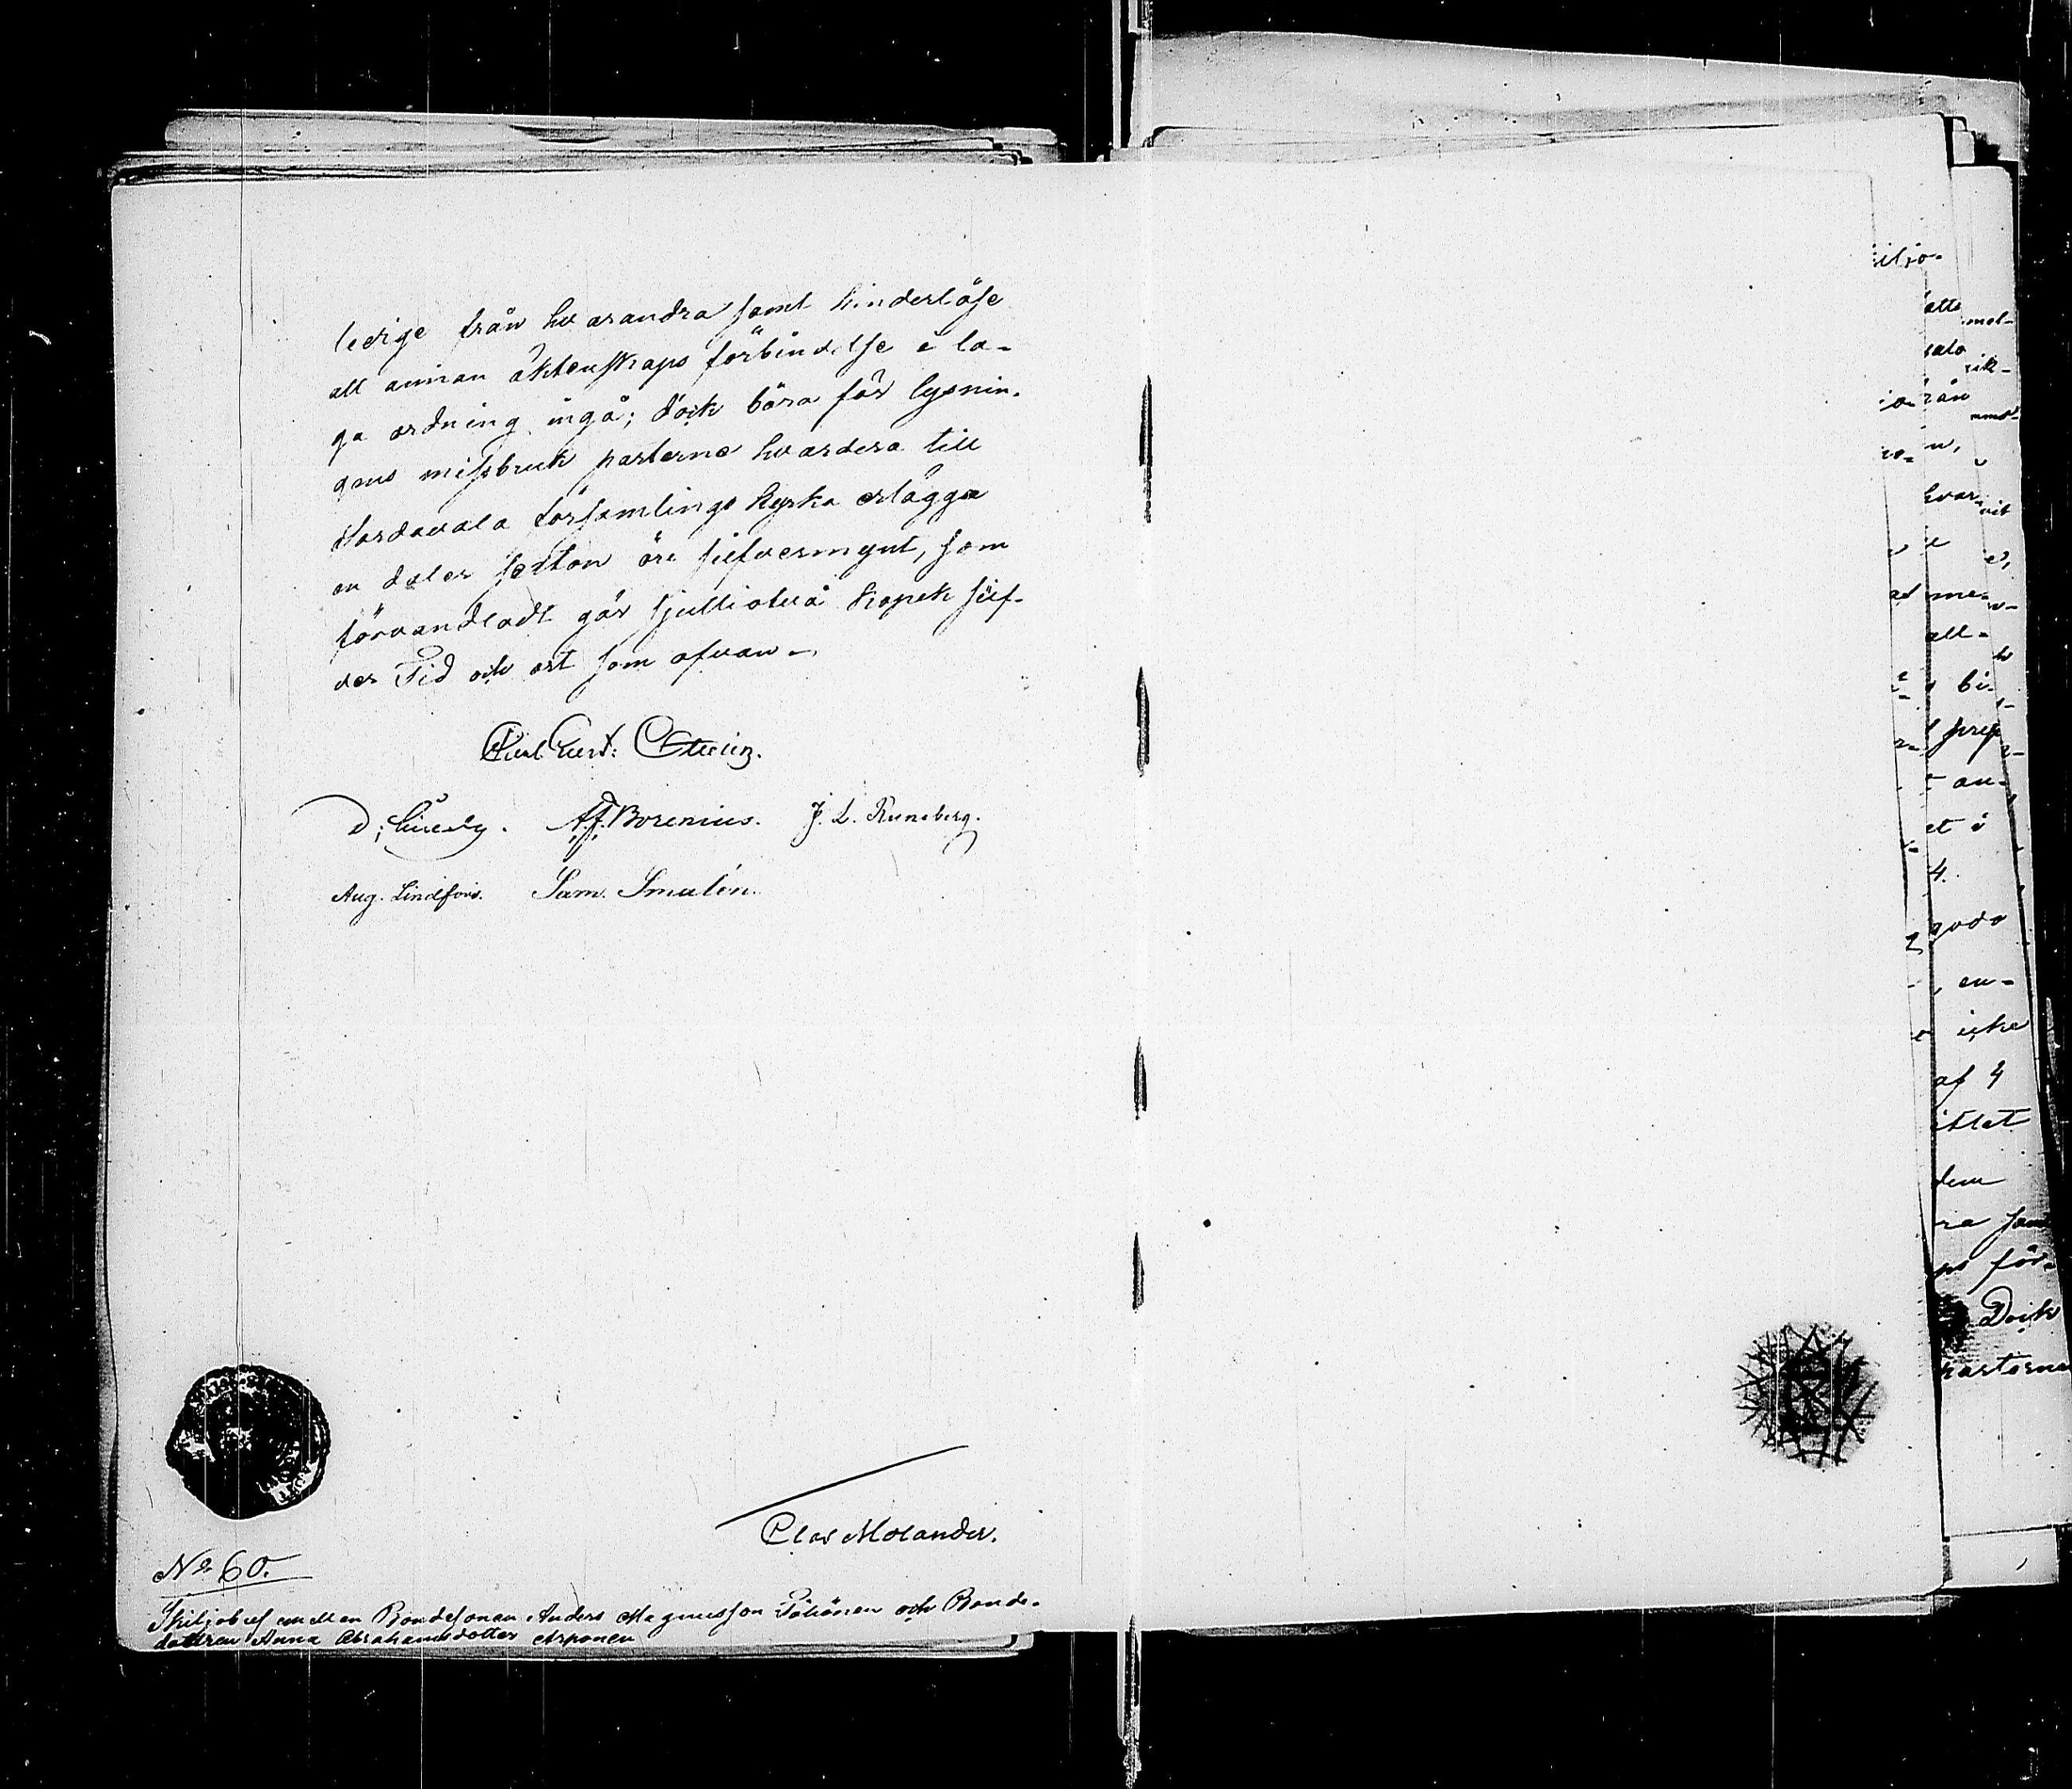 ledige från hvarandra samt hinderlöse
att annan äktenskaps förbindelse i la-
ga ordning ingå; dock böra för lysnin-
gens missbruk parterne hvardera till
Sordavala församlings kyrka erlägga
en daler sexton öre silfvermynt, som
förvandladt gör sjuttiotvå kopek silf-
ver Tid och ort som ofvan.
Carl Gust: Ottelin.
Af. Borenius. J. L. Runeberg.
Aug. Lindfors. Sam. Smalén.
Clas Molander.
No 60.
Skiljobref emellan Bondesonen Anders Magnusson Pöhönen och Bonde-
dottren Anna Abrahamsdotter Arponen
iljo-
atts
mel-
sala
rik-
rån
hvar
me-
all-
bi-
an-
et i
4.
goda
en-
icke
af 4
ittet
dem
ra samt
ps för-
Dock
parterne